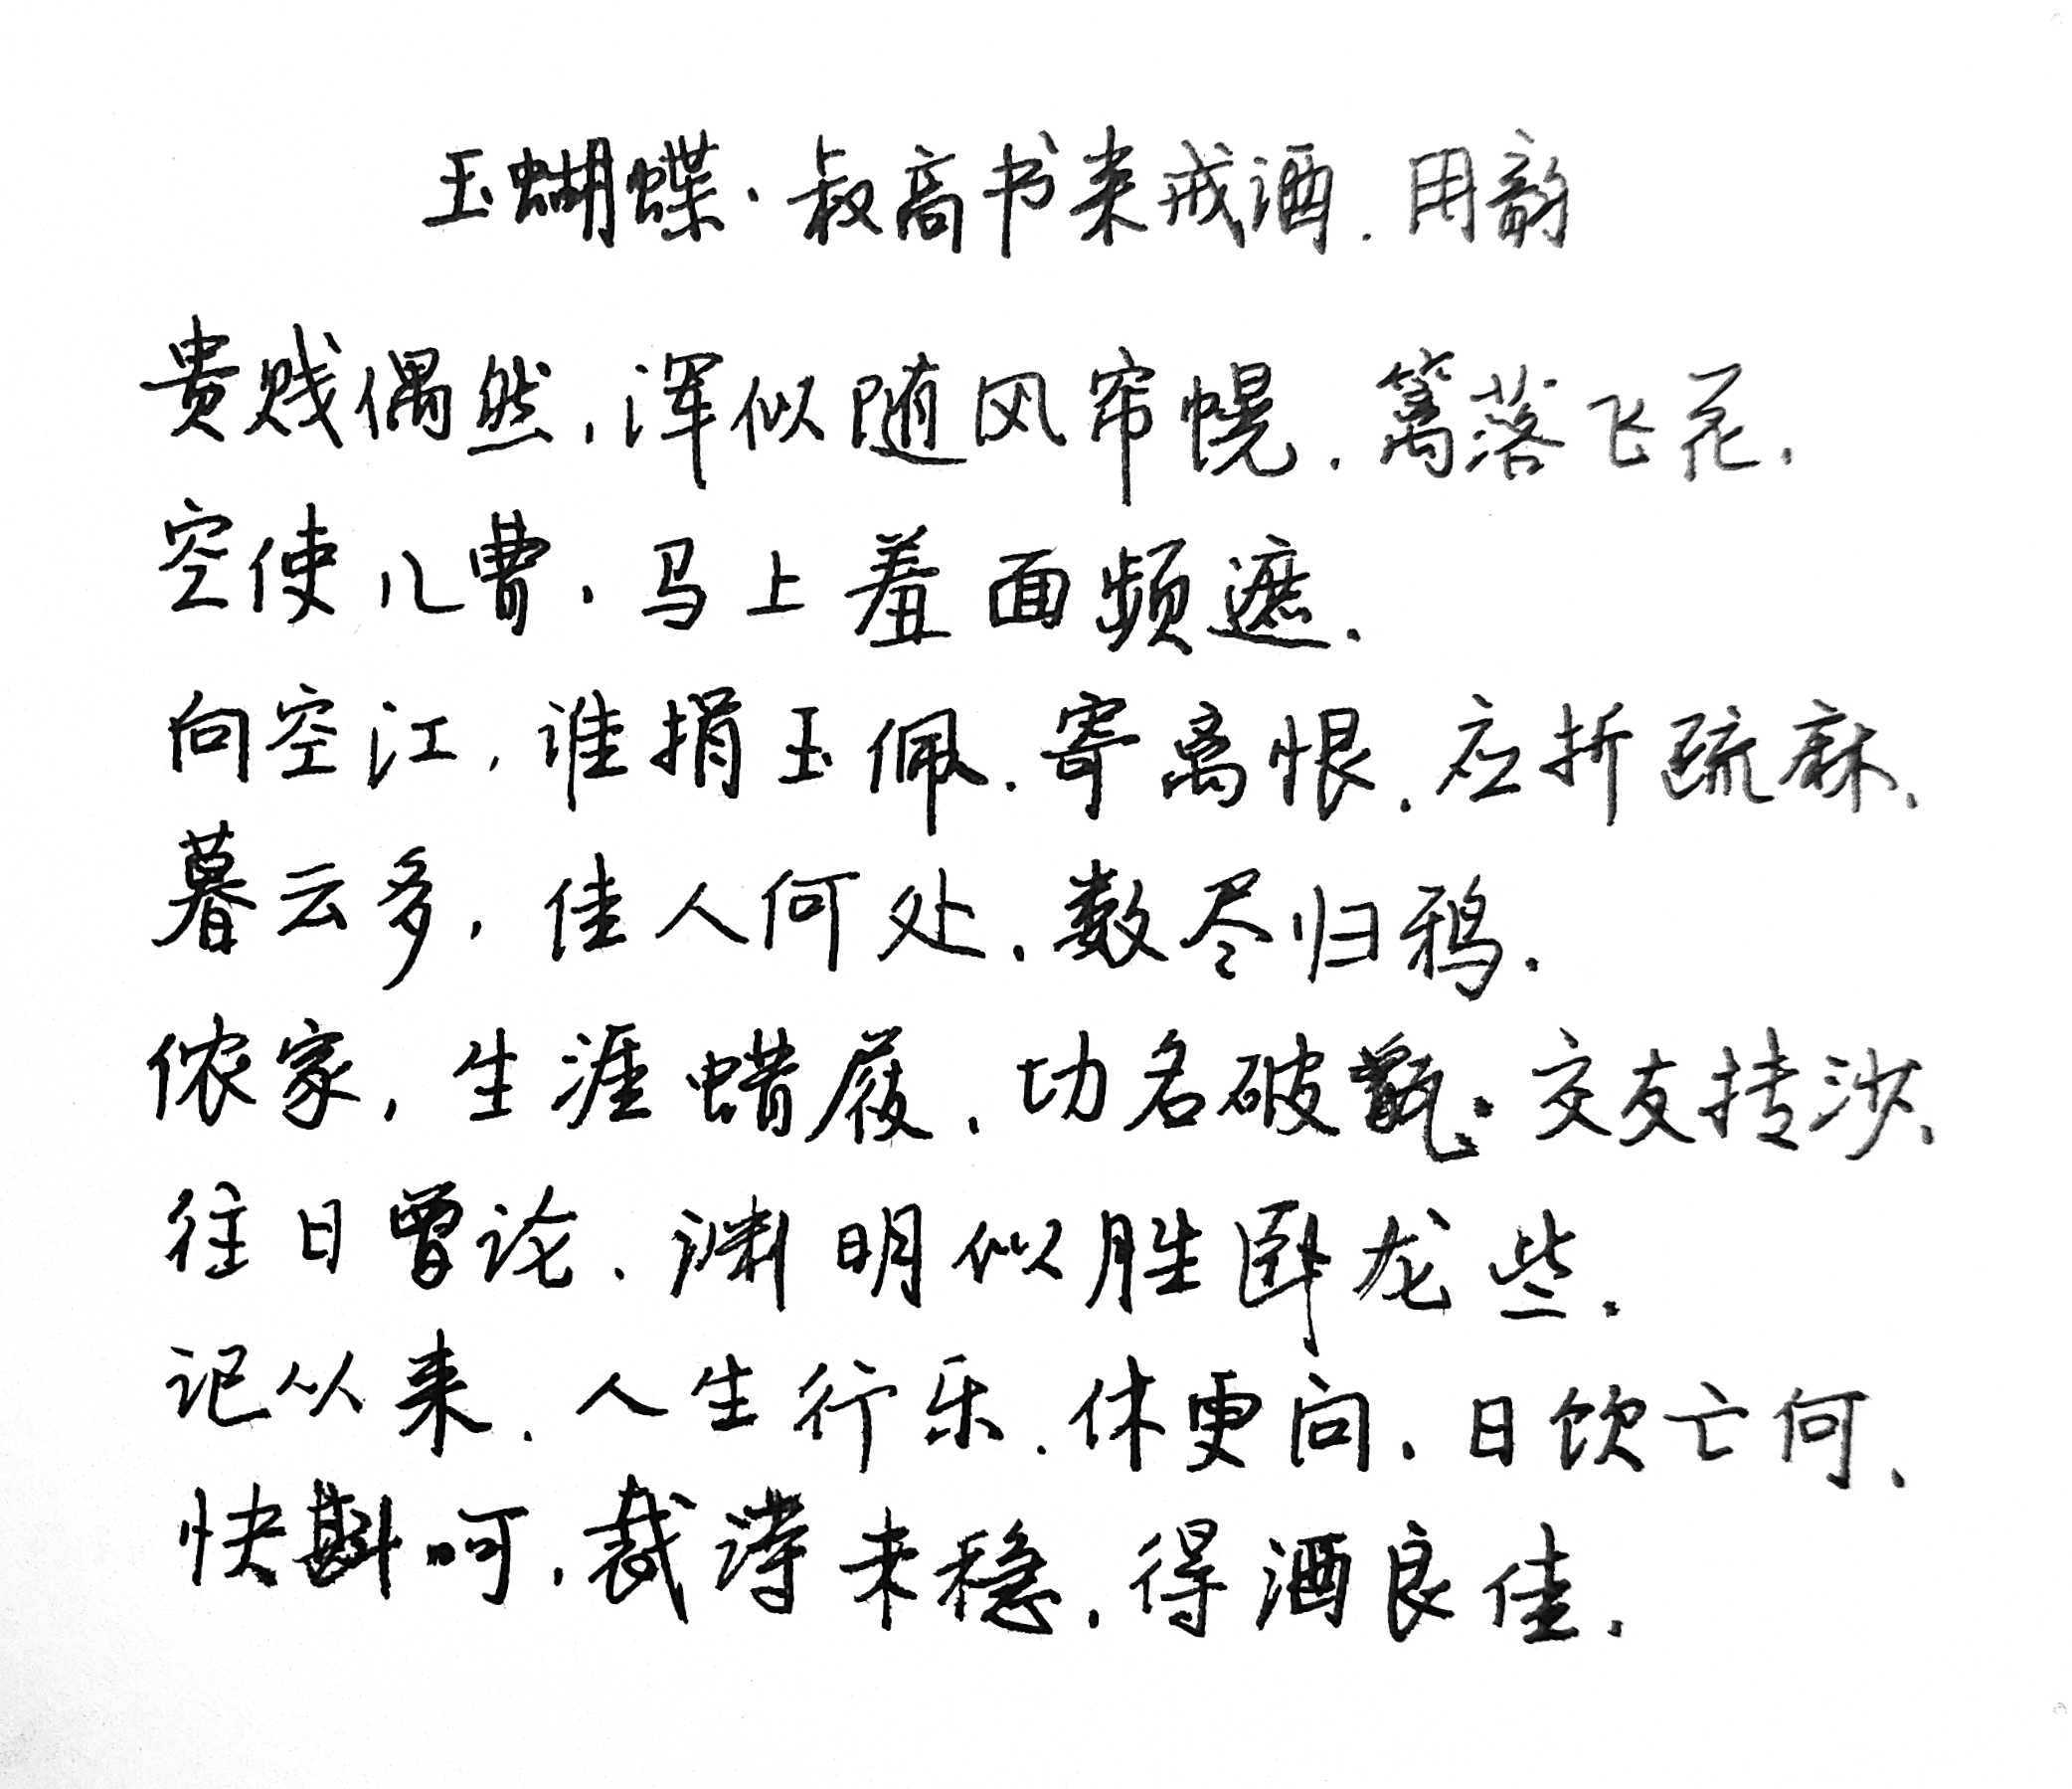 玉蝴蝶·叔高书来戒酒.用韵
贵贱偶然,浑似随风帘幌.篱落飞花.
空使儿曹.马上羞面频遮.
向空江,谁捐玉佩.寄离恨.应折疏麻.
暮云多,佳人何处.数尽归鸦.
侬家,生涯蜡屐.功名破甑.交友抟沙.
往日曾论.渊明似胜卧龙些.
记从来.人生行乐.休更问.日饮亡何.
快斟呵.裁诗未稳.得酒良佳.